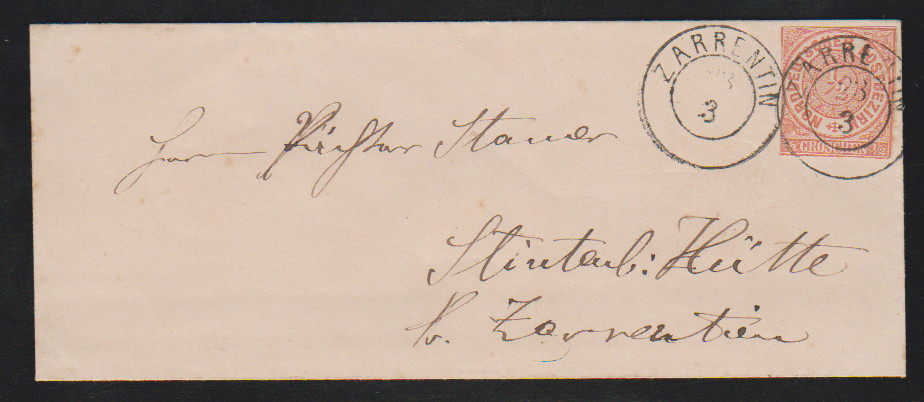 ZARRENTIN
23
3
ZARRENTIN
23
3
NORDDEUTSCHER POSTBEZIRK
1/2 GROSCHEN 1/2
Herrn Pächter Stamer
Stintenb: Hütte
b. Zarrentin